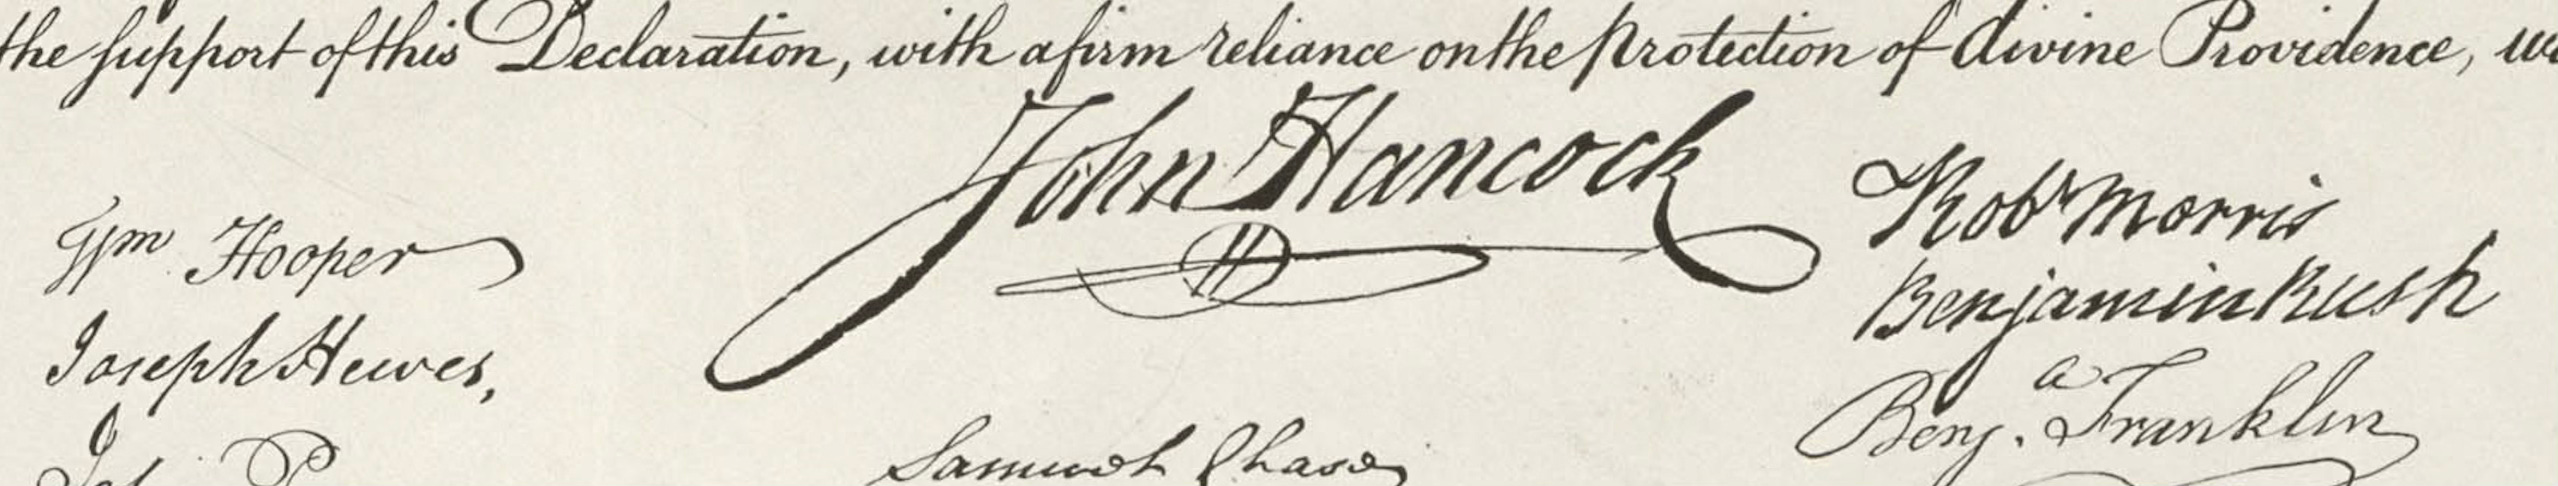 the support of this Declaration, with a firm reliance on the Protection of divine Providence, we
John Hancock
Wm Hooper
Joseph Hewes,
Samuel Chase
Robt Morris
Benjamin Rush
Benj.a Franklin